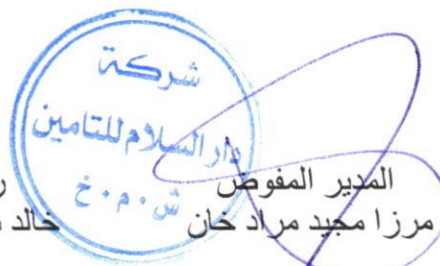 شركة
دار السلام للتامين
ش.م.خ
المدير المفوض
مرزا مجيد مراد خان
خالد